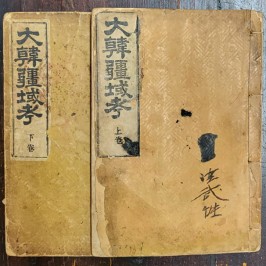 大韓疆域考
下卷
大韓疆域考
上卷